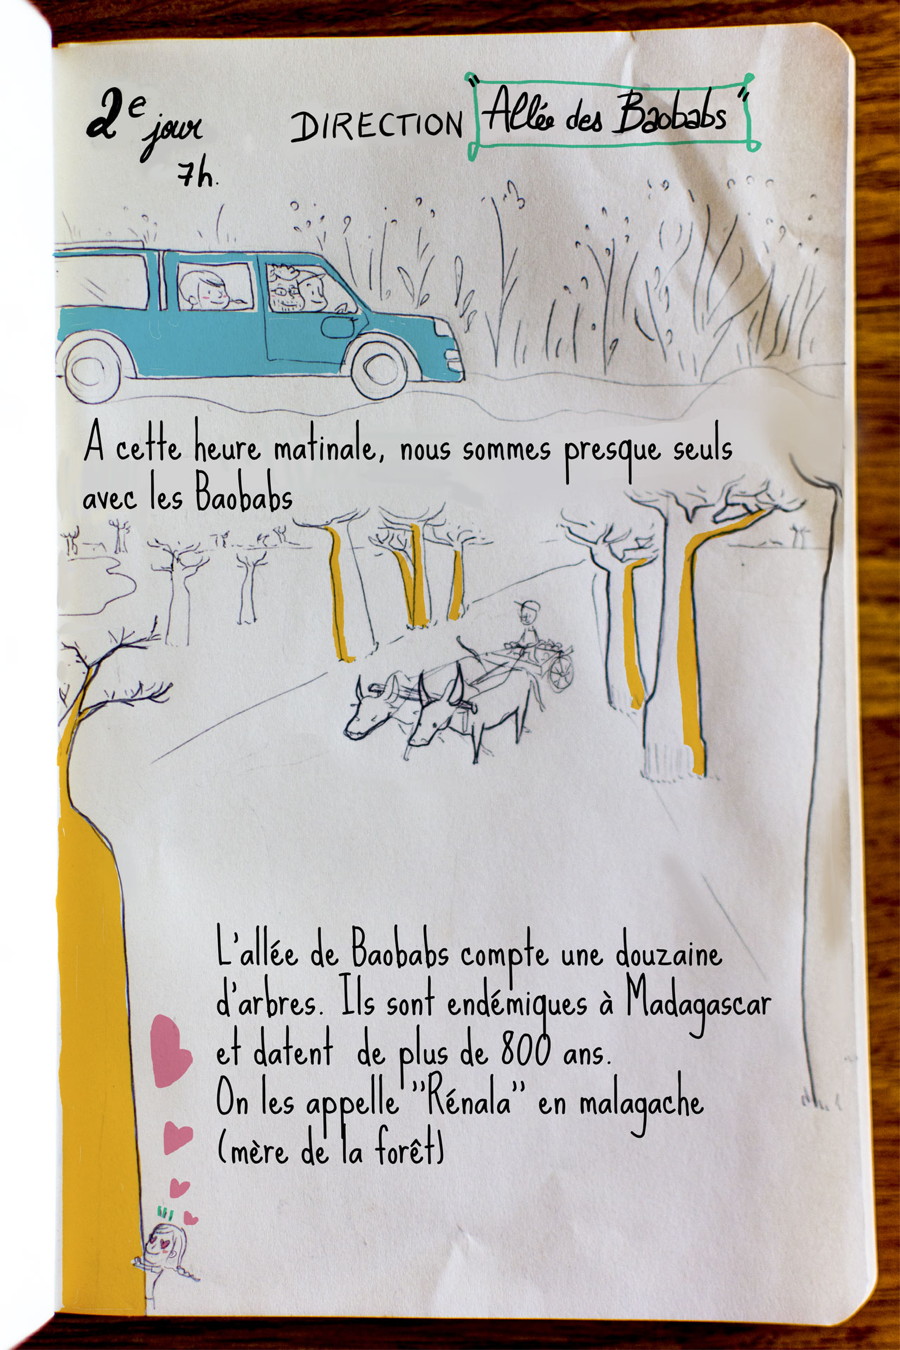 2e jour
7h.
DIRECTION "Allée des Baobabs"
A cette heure matinale, nous sommes presque seuls
avec les Baobabs
L'allée de Baobabs compte une douzaine
d'arbres. Ils sont endémiques à Madagascar
et datent de plus de 800 ans.
On les appelle "Rénala" en malagache
(mère de la forêt)